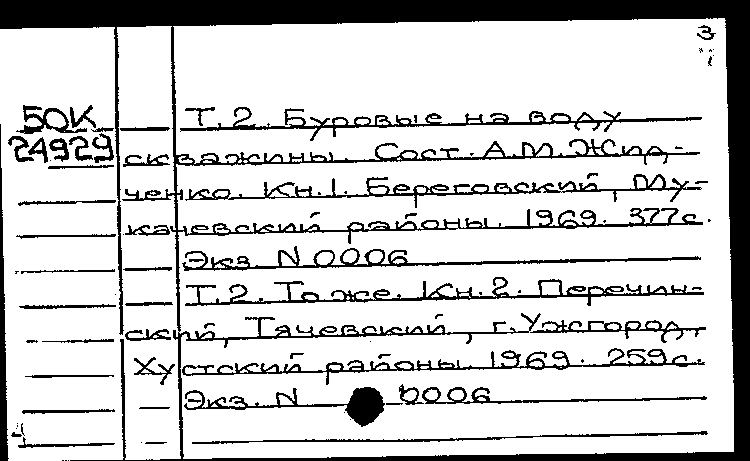 3
50К Т.2. Буровые на воду
24929 скважины. Сост. А.М. Жид-
ченко. Кн.1. Береговский, Му-
качевский районы. 1969. 377с.
Экз. N 0006
Т.2. То же. Кн.2. Перечин-
ский, Тячевский, г. Ужгород,
Хустский районы. 1969. 259с.
Экз. N 0006